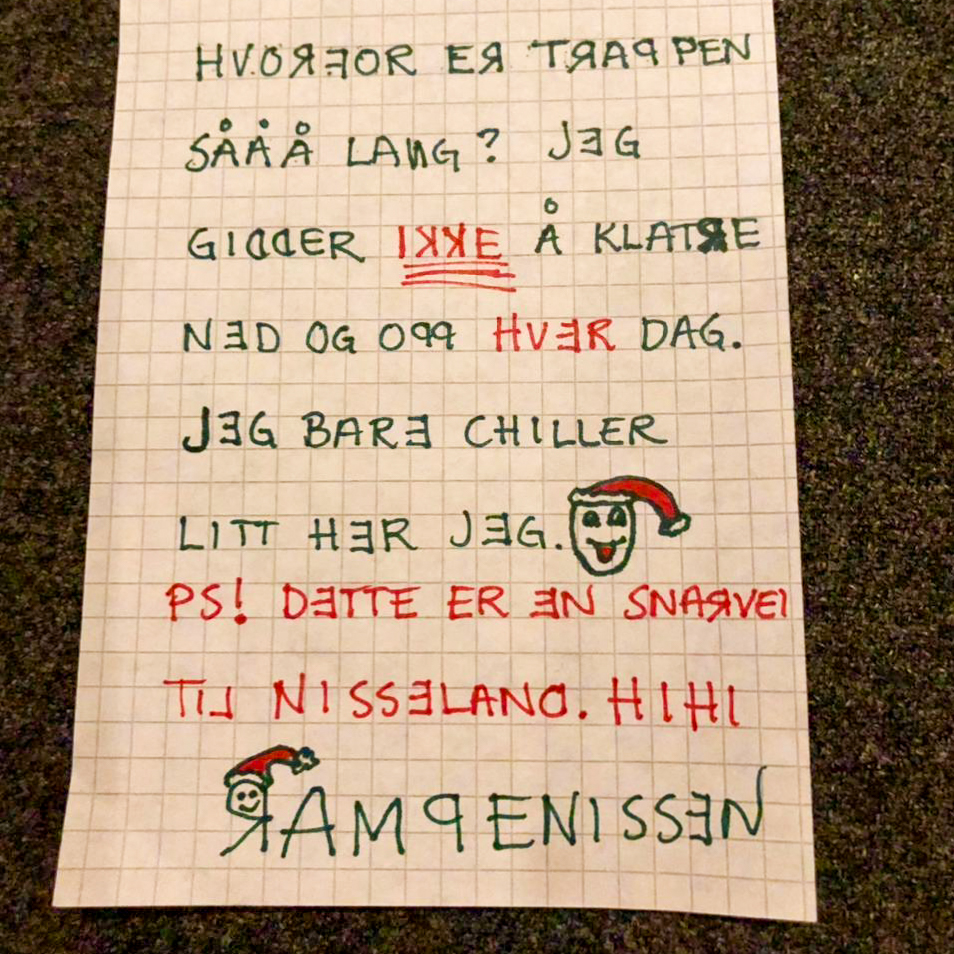 HVORFOR ER TRAPPEN
SÅÅÅ LANG? JEG
GIDDER IKKE Å KLATRE
NED OG OPP HVER DAG.
JEG BARE CHILLER
LITT HER JEG.
PS! DETTE ER EN SNARVEI
TIL NISSELAND. HIHI
RAMPENISSEN